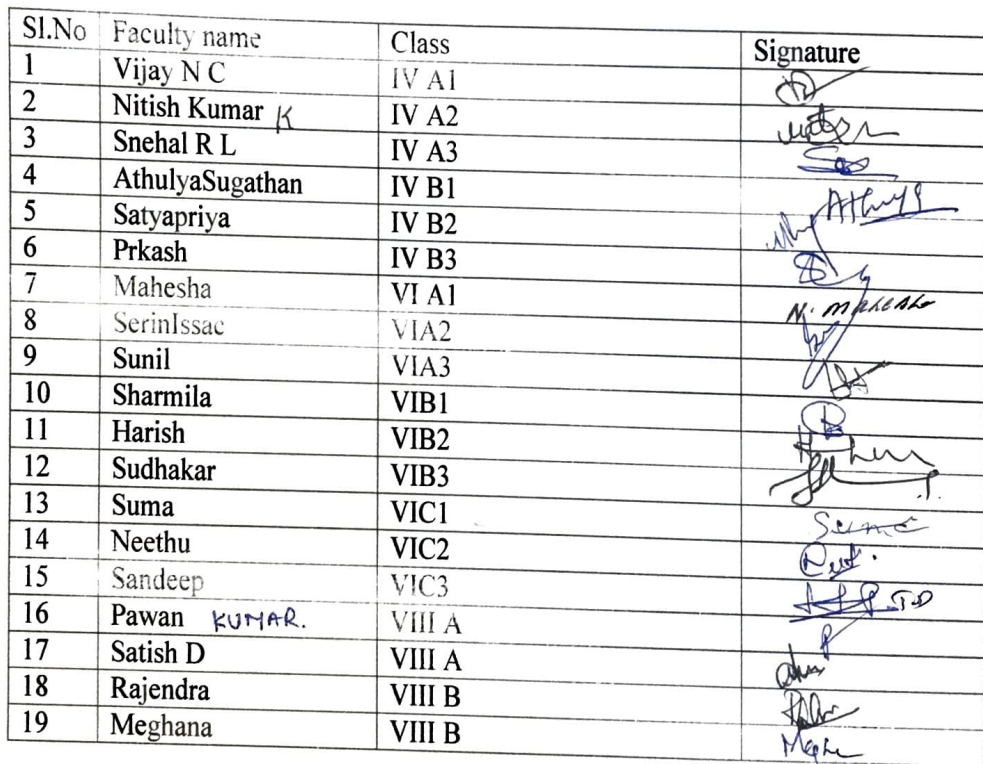 Sl.No Faculty name Class Signature
1 Vijay N C IV A1
2 Nitish Kumar K IV A2
3 Snehal R L IV A3
4 AthulyaSugathan IV B1
5 Satyapriya IV B2
6 Prkash IV B3
7 Mahesha VI A1 N. Mahesha
8 SerinIssac VIA2
9 Sunil VIA3
10 Sharmila VIB1
11 Harish VIB2
12 Sudhakar VIB3
13 Suma VIC1 Suma
14 Neethu VIC2
15 Sandeep VIC3
16 Pawan KUMAR. VIII A
17 Satish D VIII A
18 Rajendra VIII B
19 Meghana VIII B